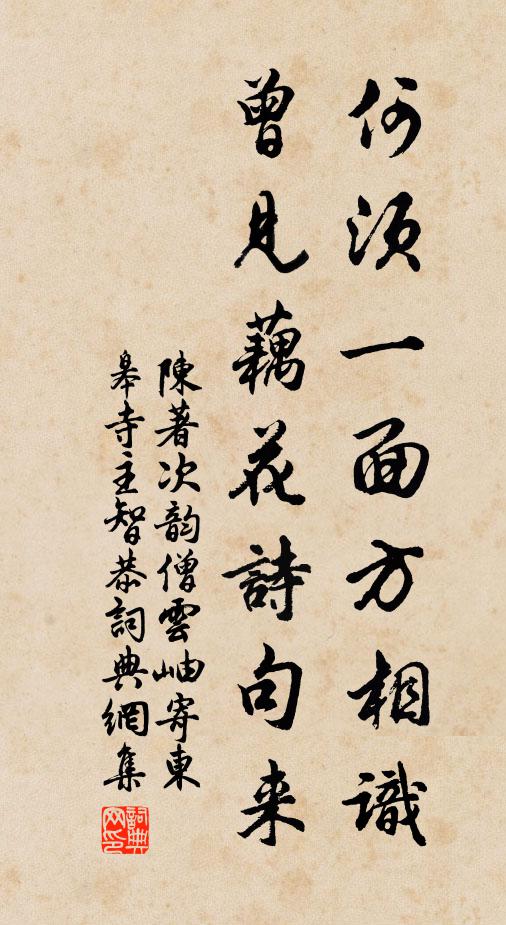 何須一面方相識
曾見藕花詩句来
陳著次韵僧雲岫寄東
皋寺主智恭詞典網集
詞典网印